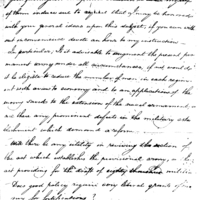 of them induce me to request that I may be honored
with your good ideas upon this subject, if you can with
out inconvenience
In particular, is it advisable to augment the present per
manent army under all circumstances, if not would
it be eligible to reduce the number of men in each regim
ent with a view to economy and to an application of the
money saved to the extension of the naval armament
are there any provisional defects in the military esta
blishment which demand a reform
Will there be any utility in reviving the section of
the act which establishes the provisional army, & the
act providing for the draft of eighty thousand militia
Does good policy require very liberal grants of mo
ney for fortifications?